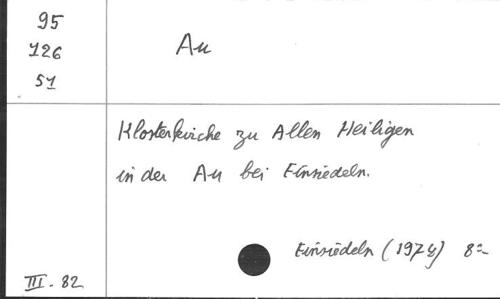 95
126
51
Au
Klosterkirche zu Allen Heiligen
in der Au bei Einsiedeln.
Einsiedeln (1974) 8°
III. 82